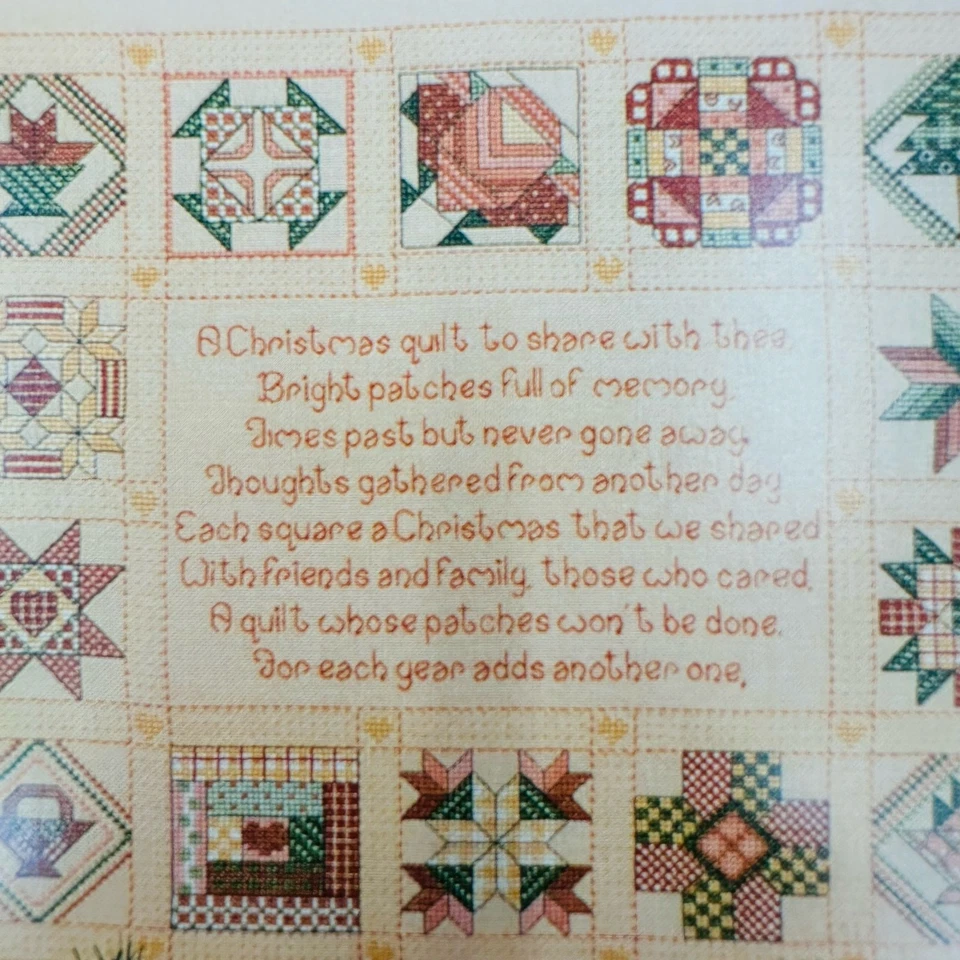 A Christmas quilt to share with thee,
Bright patches full of memory,
Times past but never gone away,
Thoughts gathered from another day
Each square a Christmas that we shared
With friends and family, those who cared.
A quilt whose patches won't be done,
For each year adds another one.